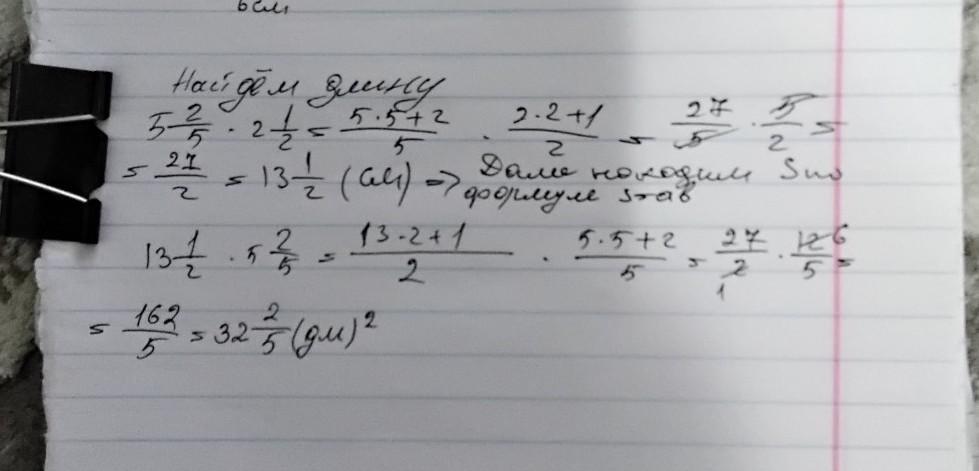 6см
Найдём длину
5 2/5 · 2 1/2 = (5·5+2)/5 · (2·2+1)/2 = 27/5 · 5/2 =
= 27/2 = 13 1/2 (см) => Далее находим S по
формуле S=ab
13 1/2 · 5 2/5 = (13·2+1)/2 · (5·5+2)/5 = 27/2 1 · 12 6/5 =
= 162/5 = 32 2/5 (дм)²